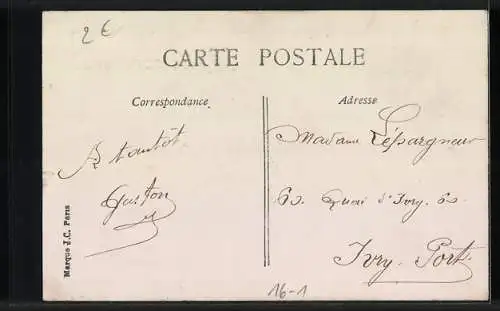 2 €
CARTE POSTALE
Correspondance
Adresse
A tantôt
Gaston
Madame Lépargneur
60. Quai d'Ivry. 60
Ivry. Port.
Marque J.C. Paris
16-1